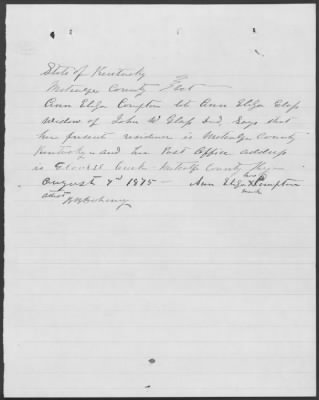 State of Kentucky
Metcalfe County Sct
Ann Eliza Compton late Ann Eliza Glass
widow of John W Glass decd, says that
her present residence is Metcalfe County
Kentucky - and her Post Office address
is Creek - Metcalfe County Ky
August 7d 1875 - Ann Eliza her X mark Compton
attest